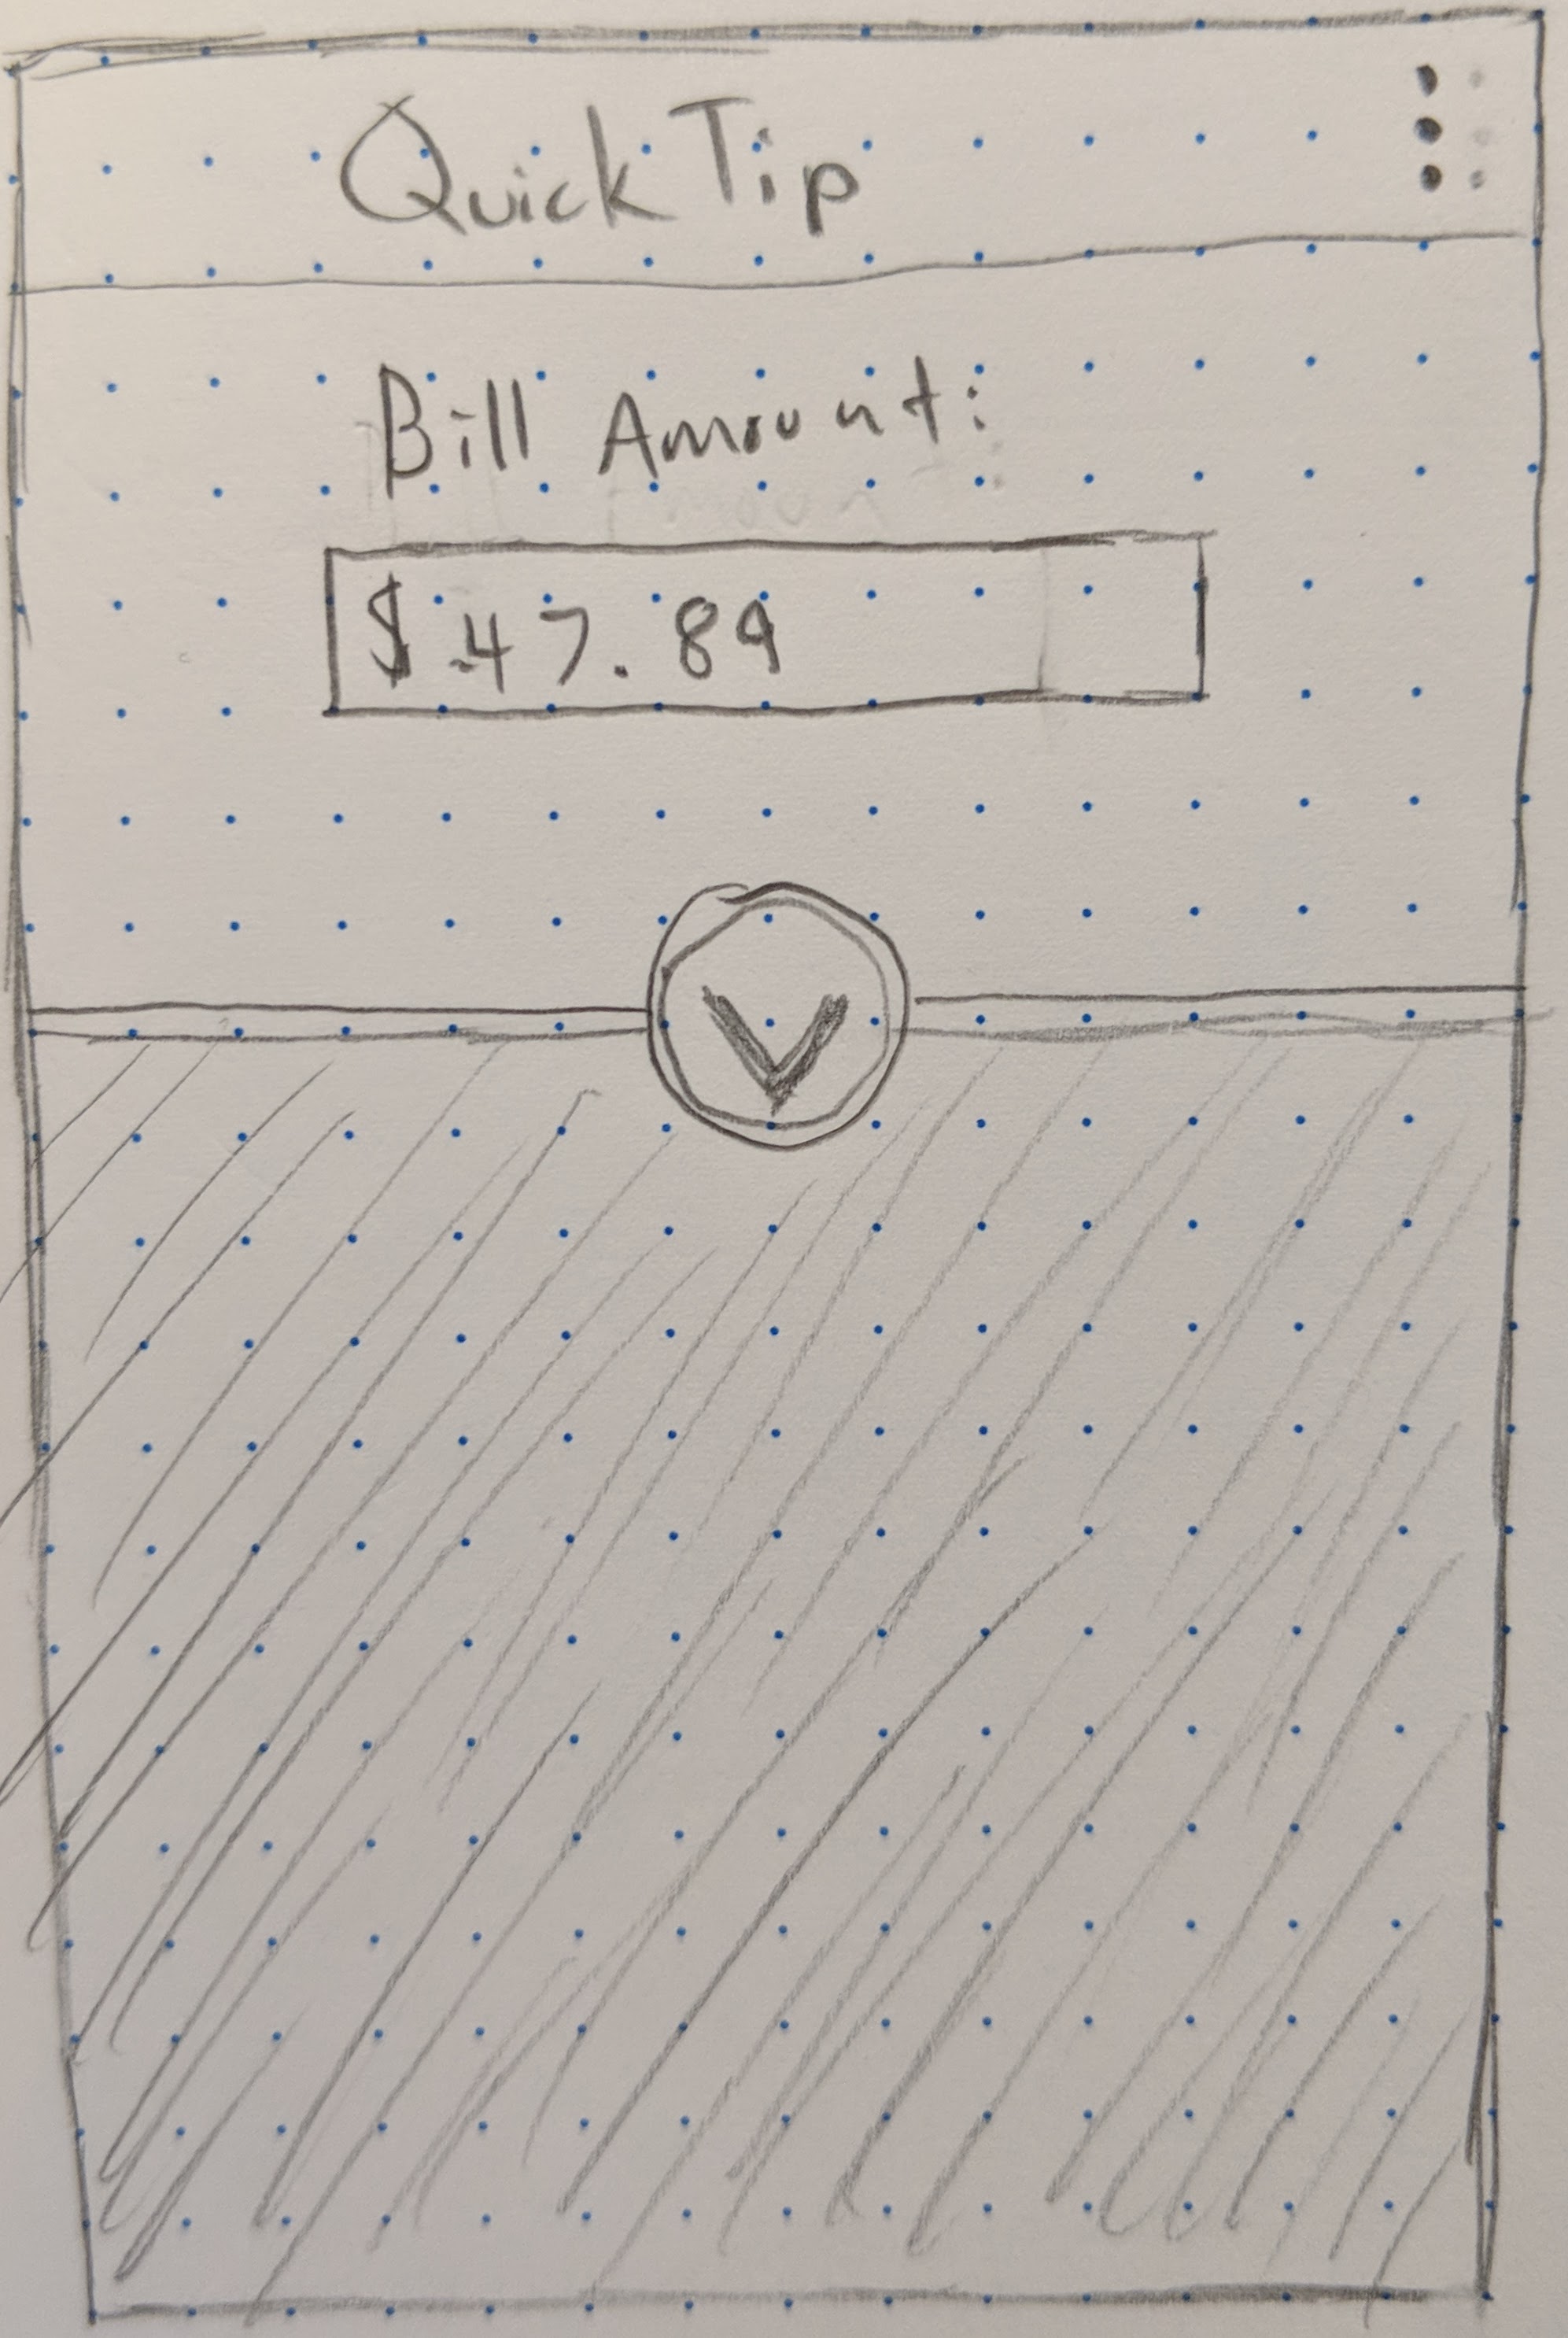 Quick Tip
Bill Amount:
$ 47.89